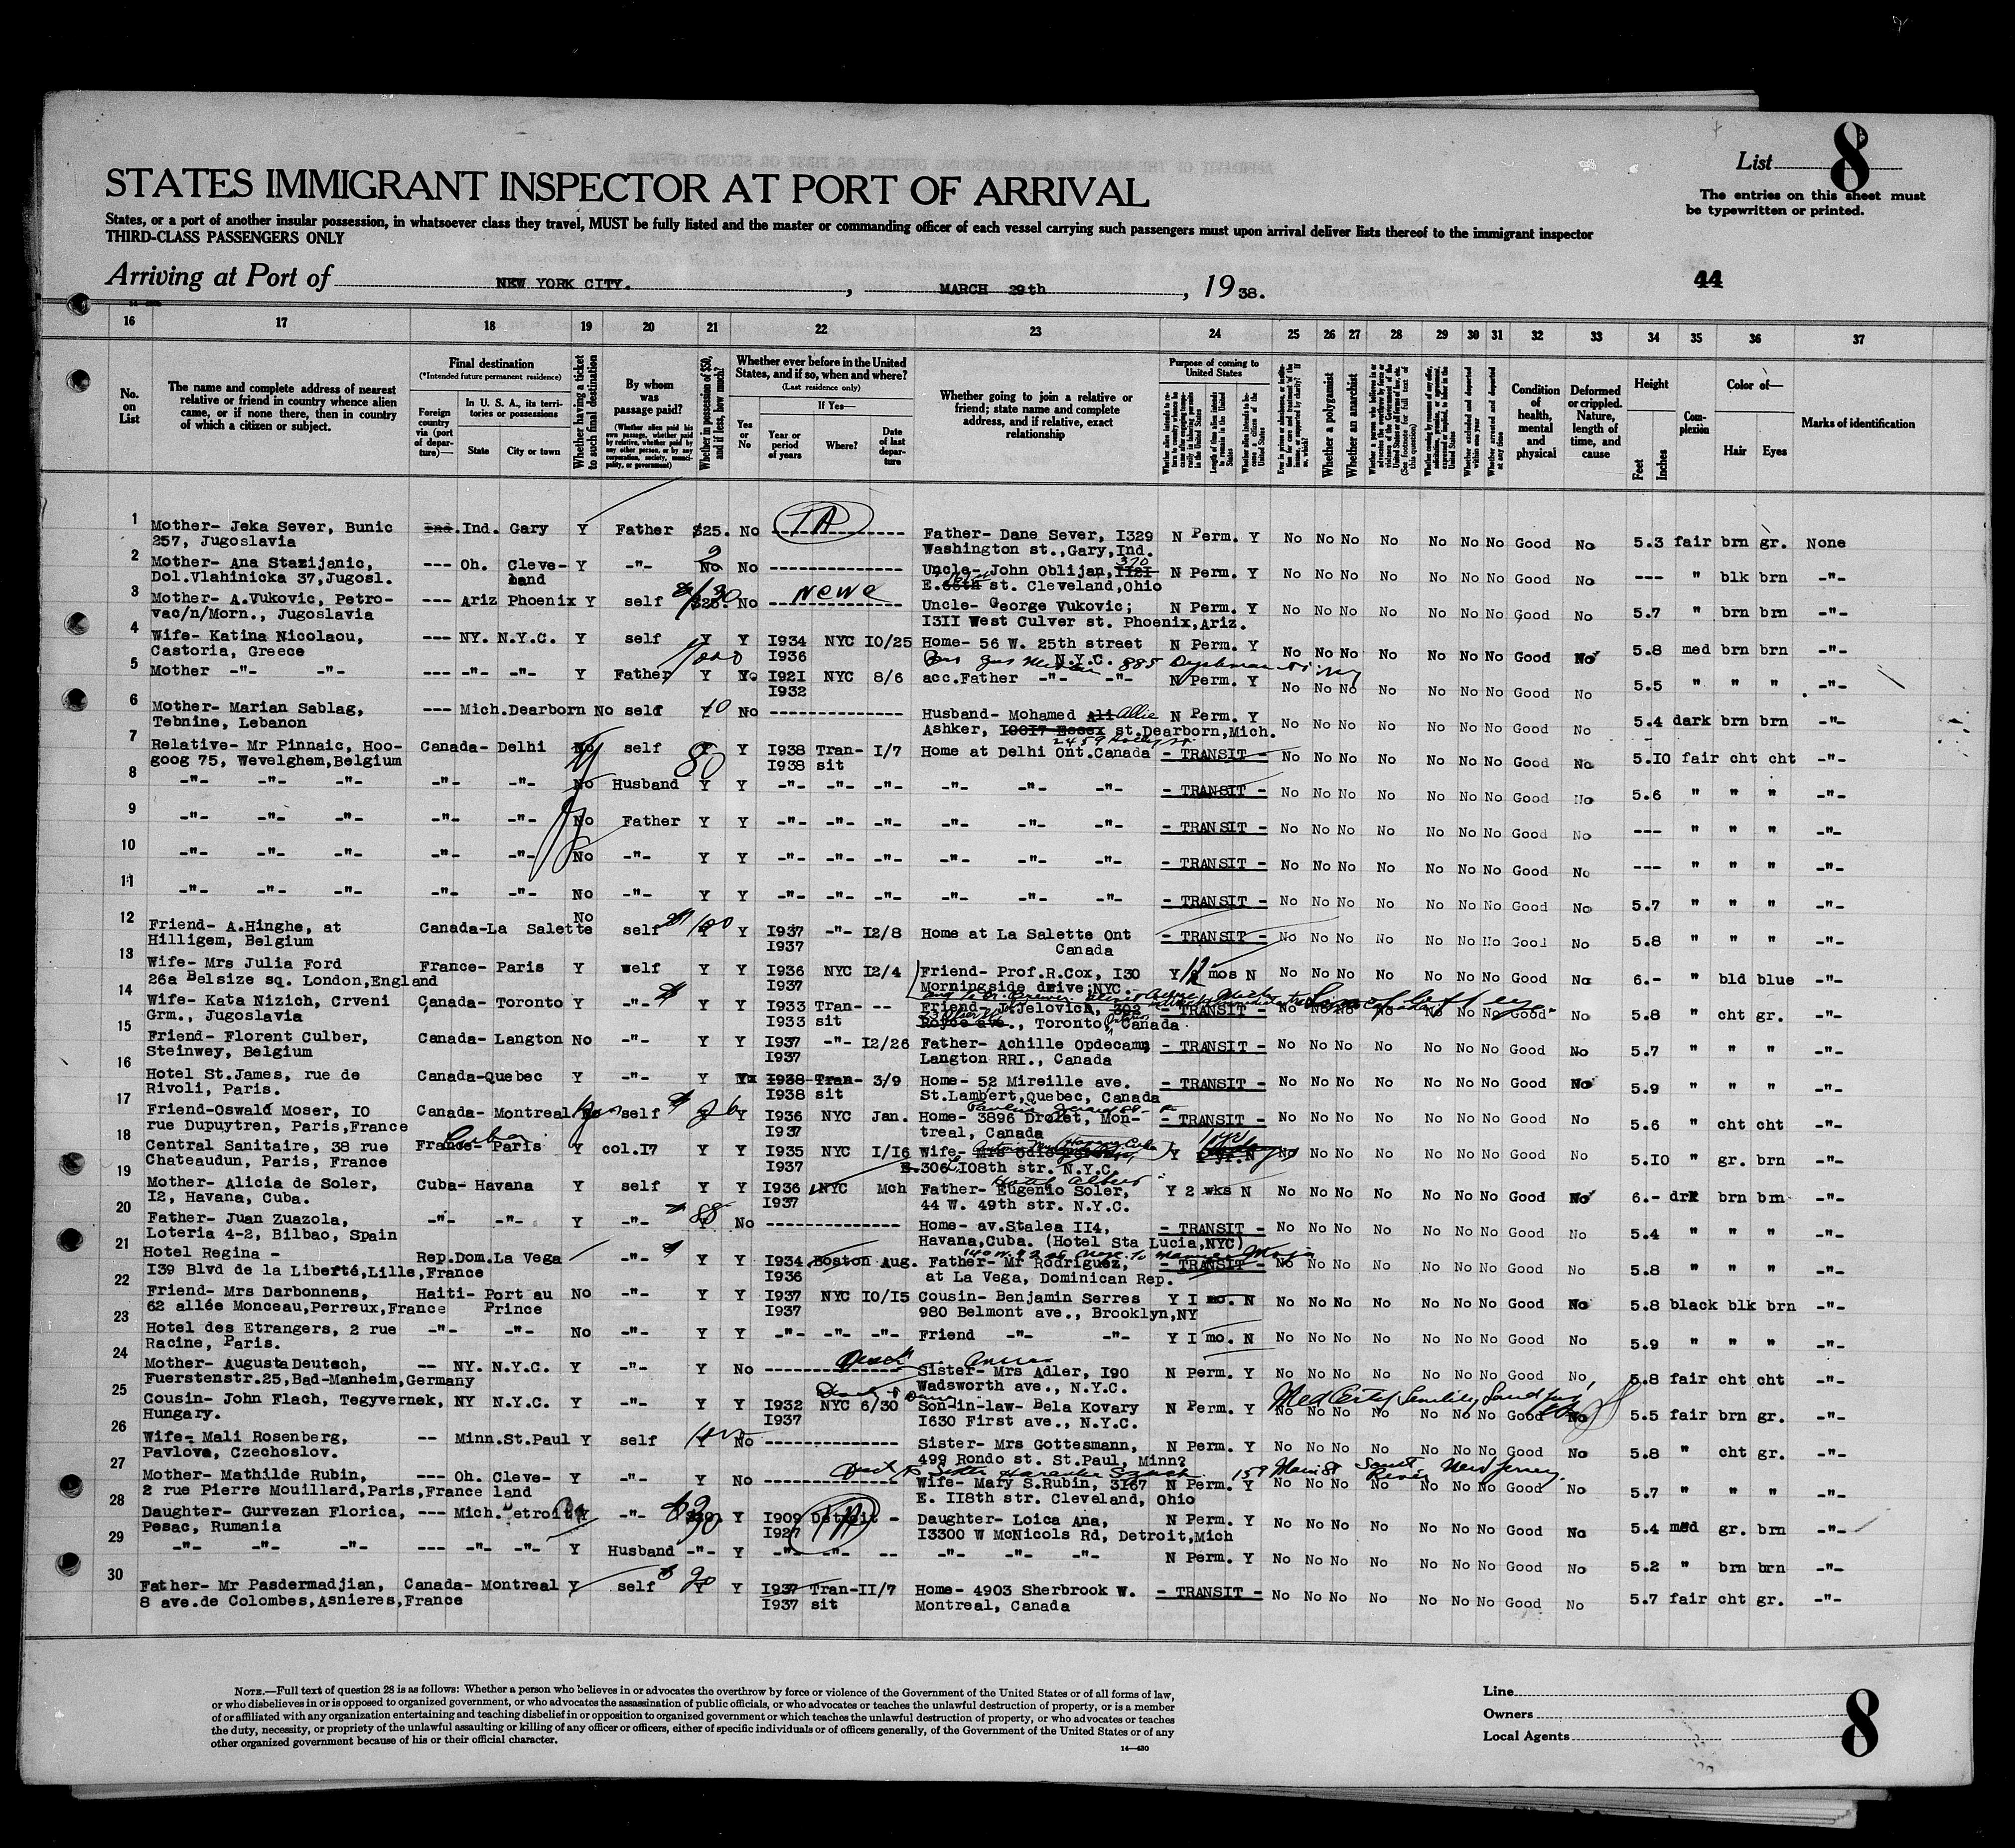 List 8
The entries on this sheet must
be typewritten or printed.
STATES IMMIGRANT INSPECTOR AT PORT OF ARRIVAL
States, or a port of another insular possession, in whatsoever class they travel, MUST be fully listed and the master or commanding officer of each vessel carrying such passengers must upon arrival deliver lists thereof to the immigrant inspector
THIRD-CLASS PASSENGERS ONLY
Arriving at Port of NEW YORK CITY. , MARCH 29th , 1938. 44
16 17 18 19 20 21 22 23 24 25 26 27 28 29 30 31 32 33 34 35 36 37
No. on List
The name and complete address of nearest relative or friend in country whence alien came, or if none there, then in country of which a citizen or subject.
Final destination
(*Intended future permanent residence)
Foreign country via (port of departure)—
In U. S. A., its territories or possessions
State City or town
Whether having a ticket to such final destination
By whom was passage paid?
(Whether alien paid his own passage, whether paid by relative, whether paid by any other person, or by any corporation, society, municipality, or government)
Whether in possession of $50, and if less, how much?
Whether ever before in the United States, and if so, when and where?
(Last residence only)
Yes or No
If Yes—
Year or period of years Where? Date of last departure
Whether going to join a relative or friend; state name and complete address, and if relative, exact relationship
Purpose of coming to United States
Length of time alien intends to remain in the United States
Whether alien intends to become a citizen of the United States
Whether a polygamist
Whether an anarchist
Whether excluded and deported within one year
Whether arrested and deported at any time
Condition of health, mental and physical
Deformed or crippled. Nature, length of time, and cause
Height
Feet Inches
Complexion
Color of—
Hair Eyes
Marks of identification
1 Mother- Jeka Sever, Bunic Ind. Ind. Gary Y Father $25. No IA Father- Dane Sever, I329 N Perm. Y No No No No No No No Good No 5.3 fair brn gr. None
257, Jugoslavia Washington st.,Gary,Ind.
2 Mother- Ana Stazijanic, --- Oh. Cleve- Y -"- No No -------------- Uncle- John Oblijan, II2I 370 N Perm. Y No No No No No No No Good No --- " blk brn -"-
Dol.Vlahinicka 37,Jugosl. land E. st. Cleveland,Ohio
3 Mother- A.Vukovic, Petro- --- Ariz Phoenix Y self $25. 30 No Uncle- George Vukovic; N Perm. Y No No No No No No No Good No 5.7 " brn brn -"-
vac/n/Morn., Jugoslavia I3II West Culver st. Phoenix,Ariz.
4 Wife- Katina Nicolaou, --- NY. N.Y.C. Y self Y Y I934 NYC I0/25 Home- 56 W. 25th street N Perm. Y No No No No No No No Good No 5.8 med brn brn -"-
Castoria, Greece I936 N.Y.C. 885
5 Mother -"- -"- --- -"- -"- Y Father Y Y I92I NYC 8/6 acc.Father -"- -"- N Perm. Y No No No No No No No Good No 5.5 " " " -"-
I932
6 Mother- Marian Sablag, --- Mich.Dearborn No self 40 No -------------- Husband- Mohamed Ali Allie N Perm. Y No No No No No No No Good No 5.4 dark brn brn -"-
Tebnine, Lebanon Ashker, I00I7 Essex st.Dearborn,Mich.
7 Relative- Mr Pinnaic, Hoo- Canada- Delhi No self Y 80 Y I938 Tran- I/7 Home at Delhi Ont.Canada - TRANSIT - No No No No No No No Good No 5.I0 fair cht cht -"-
goog 75, Wevelghem,Belgium I938 sit
8 -"- -"- -"- -"- -"- No Husband Y Y -"- -"- -"- -"- -"- -"- - TRANSIT - No No No No No No No Good No 5.6 " " " -"-
9 -"- -"- -"- -"- -"- No Father Y Y -"- -"- -"- -"- -"- -"- - TRANSIT - No No No No No No No Good No --- " " " -"-
10 -"- -"- -"- -"- -"- No -"- Y Y -"- -"- -"- -"- -"- -"- - TRANSIT - No No No No No No No Good No --- " " " -"-
11 -"- -"- -"- -"- -"- No -"- Y Y -"- -"- -"- -"- -"- -"- - TRANSIT - No No No No No No No Good No 5.7 " " " -"-
12 Friend- A.Hinghe, at Canada-La Salette No self Y Y I937 -"- I2/8 Home at La Salette Ont - TRANSIT - No No No No No No No Good No 5.8 " " " -"-
Hilligem, Belgium I937 Canada
13 Wife- Mrs Julia Ford France- Paris Y welf Y Y I936 NYC I2/4 Friend- Prof.R.Cox, I30 Y 12 mos N No No No No No No No Good No 6.- " bld blue -"-
26a Belsize sq. London,England I937 Morningside drive;NYC.
14 Wife- Kata Nizich, Crveni Canada- Toronto Y -"- Y Y I933 Tran- -- Friend- J.Jelovich, - TRANSIT - No No No No No No No Good No 5.8 " cht gr. -"-
Grm., Jugoslavia I933 sit Royce ave., Toronto, Canada
15 Friend- Florent Culber, Canada- Langton No -"- Y Y I937 -"- I2/26 Father- Achille Opdecamp - TRANSIT - No No No No No No No Good No 5.7 " " " -"-
Steinwey, Belgium I937 Langton RRI., Canada
16 Hotel St.James, rue de Canada-Quebec Y -"- Y I938 Tran- 3/9 Home- 52 Mireille ave. - TRANSIT - No No No No No No No Good No 5.9 " " " -"-
Rivoli, Paris. I938 sit St.Lambert,Quebec, Canada
17 Friend-Oswald Moser, I0 Canada- Montreal self Y I936 NYC Jan. Home- 3896 Drolet, Mon- - TRANSIT - No No No No No No No Good No 5.6 " cht cht -"-
rue Dupuytren, Paris,France I937 treal, Canada
18 Central Sanitaire, 38 rue France- Paris Cuba Y col.I7 Y Y I935 NYC I/I6 Wife- Y N No No No No No No No Good No 5.I0 " gr. brn -"-
Chateaudun, Paris, France I937 306 I08th str. N.Y.C.
19 Mother- Alicia de Soler, Cuba- Havana Y self Y Y I936 NYC Mch Father- Eugenio Soler, Y 2 wks N No No No No No No No Good No 6.- drk brn brn -"-
I2, Havana, Cuba. I937 44 W. 49th str. N.Y.C.
20 Father- Juan Zuazola, -"- -"- Y -"- 88 No -------------- Home- av.Stalea II4, - TRANSIT - No No No No No No No Good No 5.4 " " " -"-
Loteria 4-2, Bilbao, Spain Havana,Cuba. (Hotel Sta Lucia,NYC)
21 Hotel Regina - Rep.Dom.La Vega -"- Y Y I934 Boston Aug. Father- Mr Rodriguez, - TRANSIT - No No No No No No No Good No 5.8 " " " -"-
I39 Blvd de la Liberté,Lille,France I936 at La Vega, Dominican Rep.
22 Friend- Mrs Darbonnens, Haiti- Port au No -"- Y Y I937 NYC I0/I5 Cousin- Benjamin Serres Y I mo. N No No No No No No No Good No 5.8 black blk brn -"-
62 allée Monceau,Perreux,France Prince I937 980 Belmont ave., Brooklyn,NY
23 Hotel des Etrangers, 2 rue -"- -"- No -"- Y Y -"- -"- -"- Friend -"- -"- Y I mo. N No No No No No No No Good No 5.9 " " " -"-
Racine, Paris.
24 Mother- Augusta Deutsch, -- NY. N.Y.C. Y -"- Y No -------------- Sister- Mrs Adler, I90 N Perm. Y No No No No No No No Good No 5.8 fair cht cht -"-
Fuerstenstr.25,Bad-Manheim,Germany Wadsworth ave., N.Y.C.
25 Cousin- John Flach, Tegyvernek, NY N.Y.C. Y -"- Y Y I932 NYC 6/30 Son-in-law- Bela Kovary N Perm. Y No No No No No No No Good No 5.5 fair brn gr. -"-
Hungary. I937 I630 First ave., N.Y.C. Med Certif Senility
26 Wife- Mali Rosenberg, -- Minn.St.Paul Y self Y No -------------- Sister- Mrs Gottesmann, N Perm. Y No No No No No No No Good No 5.8 " cht gr. -"-
Pavlova, Czechoslov. 499 Rondo st. St.Paul, Minn?
27 Mother- Mathilde Rubin, --- Oh. Cleve- Y -"- Y No -------------- Wife- Mary S.Rubin, 3167 N Perm. Y No No No No No No No Good No 5.7 " " " -"-
2 rue Pierre Mouillard,Paris,France land E. II8th str. Cleveland, Ohio 159 Main St River New Jersey
28 Daughter- Gurvezan Florica, --- Mich.Detroit Y -"- Y I909 Detroit - Daughter- Loica Ana, N Perm. Y No No No No No No No Good No 5.4 med gr. brn -"-
Pesac, Rumania I927 IA I3300 W McNicols Rd, Detroit,Mich
29 -"- -"- -"- --- -"- -"- Y Husband -"- Y -"- -"- -- -"- -"- -"- N Perm. Y No No No No No No No Good No 5.2 " brn brn -"-
30 Father- Mr Pasdermadjian, Canada- Montreal Y self 90 Y I937 Tran-II/7 Home- 4903 Sherbrook W. - TRANSIT - No No No No No No No Good No 5.7 fair cht gr. -"-
8 ave.de Colombes,Asnieres,France I937 sit Montreal, Canada
NOTE.—Full text of question 28 is as follows: Whether a person who believes in or advocates the overthrow by force or violence of the Government of the United States or of all forms of law,
or who disbelieves in or is opposed to organized government, or who advocates the assassination of public officials, or who advocates or teaches the unlawful destruction of property, or is a member
of or affiliated with any organization entertaining and teaching disbelief in or opposition to organized government or which teaches the unlawful destruction of property, or who advocates or teaches
the duty, necessity, or propriety of the unlawful assaulting or killing of any officer or officers, either of specific individuals or of officers generally, of the Government of the United States or of any
other organized government because of his or their official character.
14—430
Line
Owners
Local Agents
8